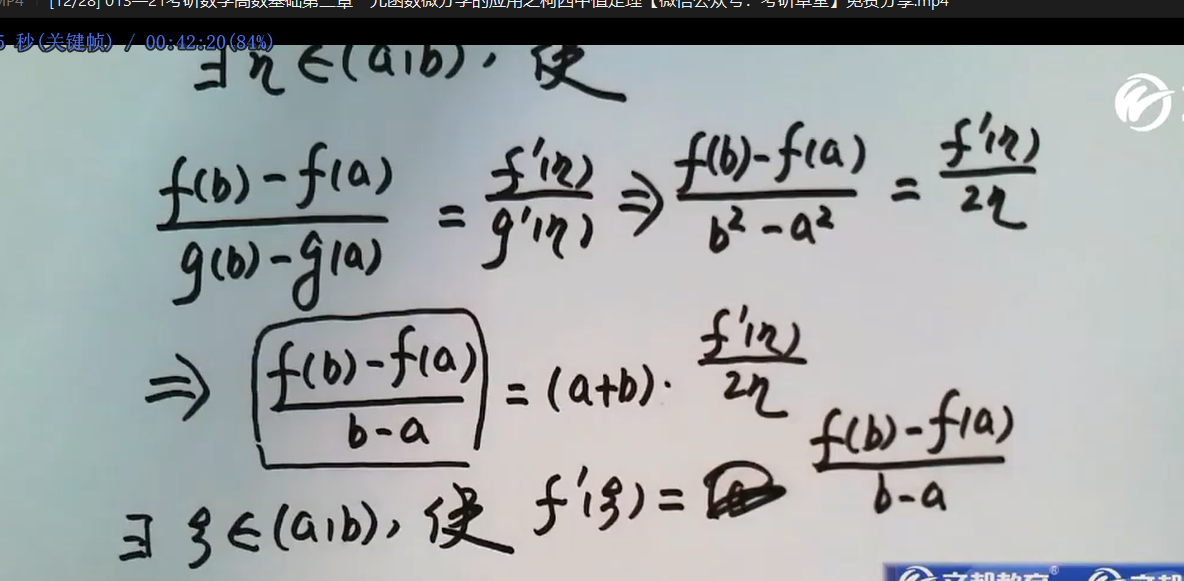 [12/28] 013—21考研数学高数基础第三章一元函数微分学的应用之柯西中值定理【微信公众号：考研草堂】免费分享.mp4
5 秒(关键帧) / 00:42:20(84%)
∃ η ∈ (a,b), 使
(f(b)-f(a))/(g(b)-g(a)) = f'(η)/g'(η) ⇒ (f(b)-f(a))/(b²-a²) = f'(η)/2η
⇒ (f(b)-f(a))/(b-a) = (a+b)· f'(η)/2η
∃ ξ ∈ (a,b), 使 f'(ξ) = (f(b)-f(a))/(b-a)
文都教育®